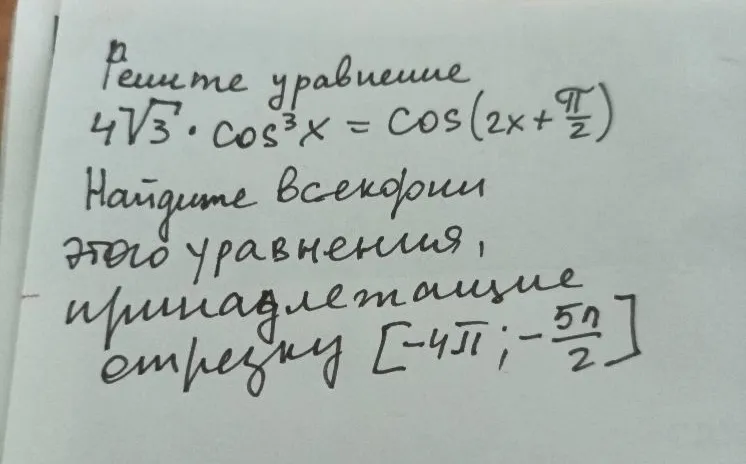 Решите уравнение
4√3 · cos³x = cos(2x + π/2)
Найдите все корни
этого уравнения,
принадлежащие
отрезку [-4π; -5π/2]